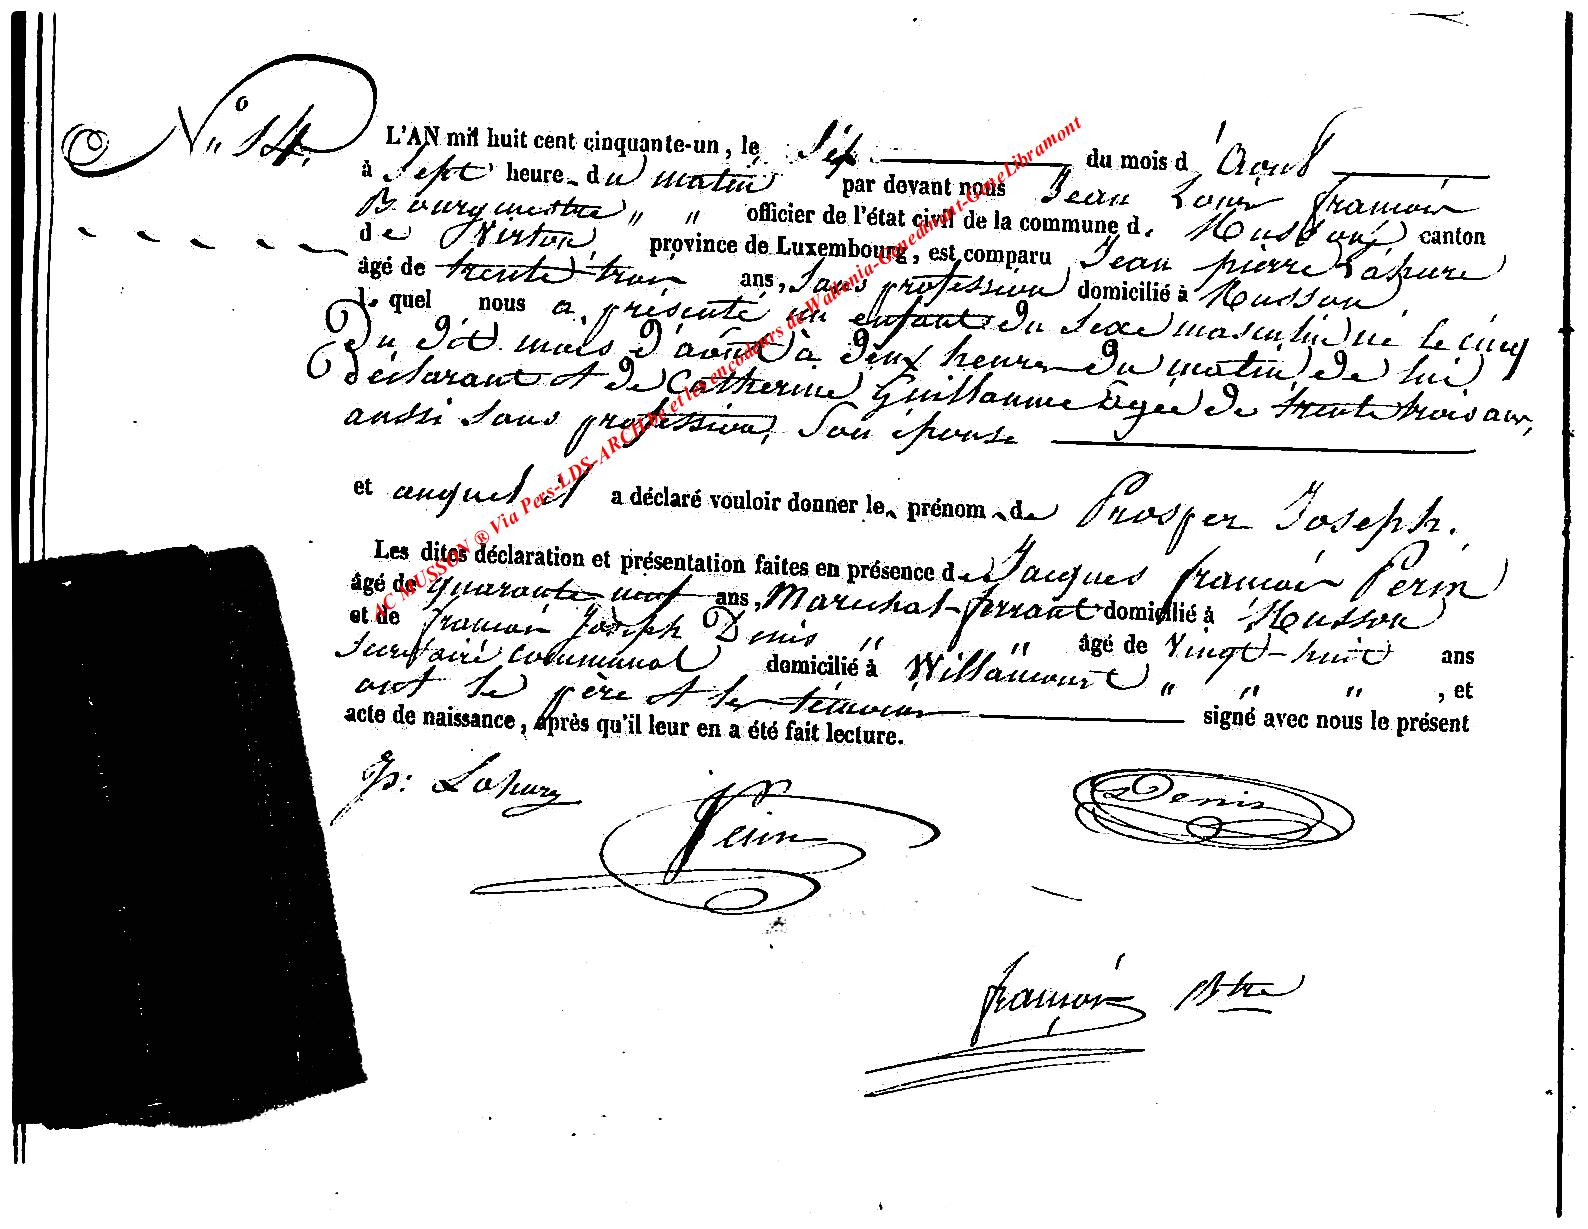 N° 14.
L'AN mil huit cent cinquante-un, le Six du mois d'Août
à Sept heure du matin par devant nous Jean Louis françois
Bourgmestre " " officier de l'état civil de la commune de Musson, canton
de Virton, province de Luxembourg, est comparu Jean pierre Lahure
âgé de trente trois ans, Sans profession domicilié à Musson
lequel nous a présenté un enfant du Sexe masculin né le cinq
Du dit mois d'août à deux heures du matin, de lui
déclarant et de Catherine Guillaume âgée de trente trois ans,
aussi sans profession, Son épouse
et auquel il a déclaré vouloir donner le prénom de Prosper Joseph.
Les dites déclaration et présentation faites en présence de Jacques françois Perin
âgé de quarante neuf ans, Maréchal-ferrant domicilié à Musson
et de françois Joseph Denis " " âgé de Vingt-huit ans
Secrétaire communal domicilié à Willancourt " " " , et
ont le père et les témoins signé avec nous le présent
acte de naissance, après qu'il leur en a été fait lecture.
Jp: Lahure
Perin
Denis
françois Btre
AC MUSSON ® Via Pers-LDS-ARCH.be et les encodeurs de Wallonia-Genedinant-GeneLibramont